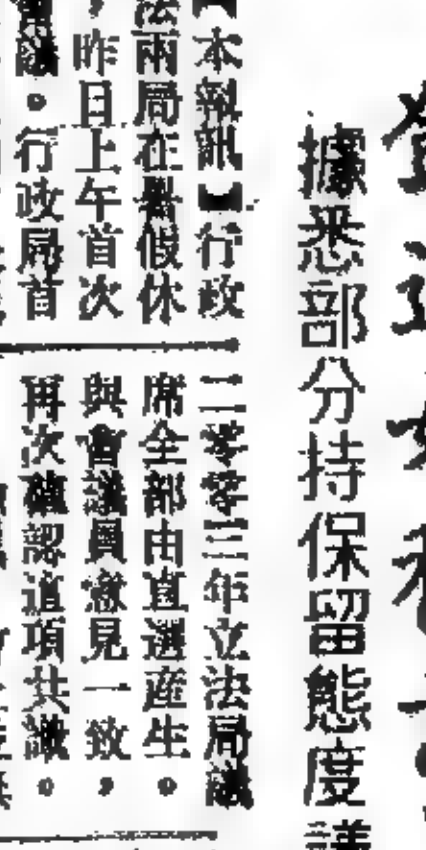 據悉部分持保留態度議
【本報訊】行政
法兩局在暑假休
，昨日上午首次
會議。行政局首
二零零三年立法局議
席全部由直選產生。
與會議員意見一致，
再次確認這項共識。